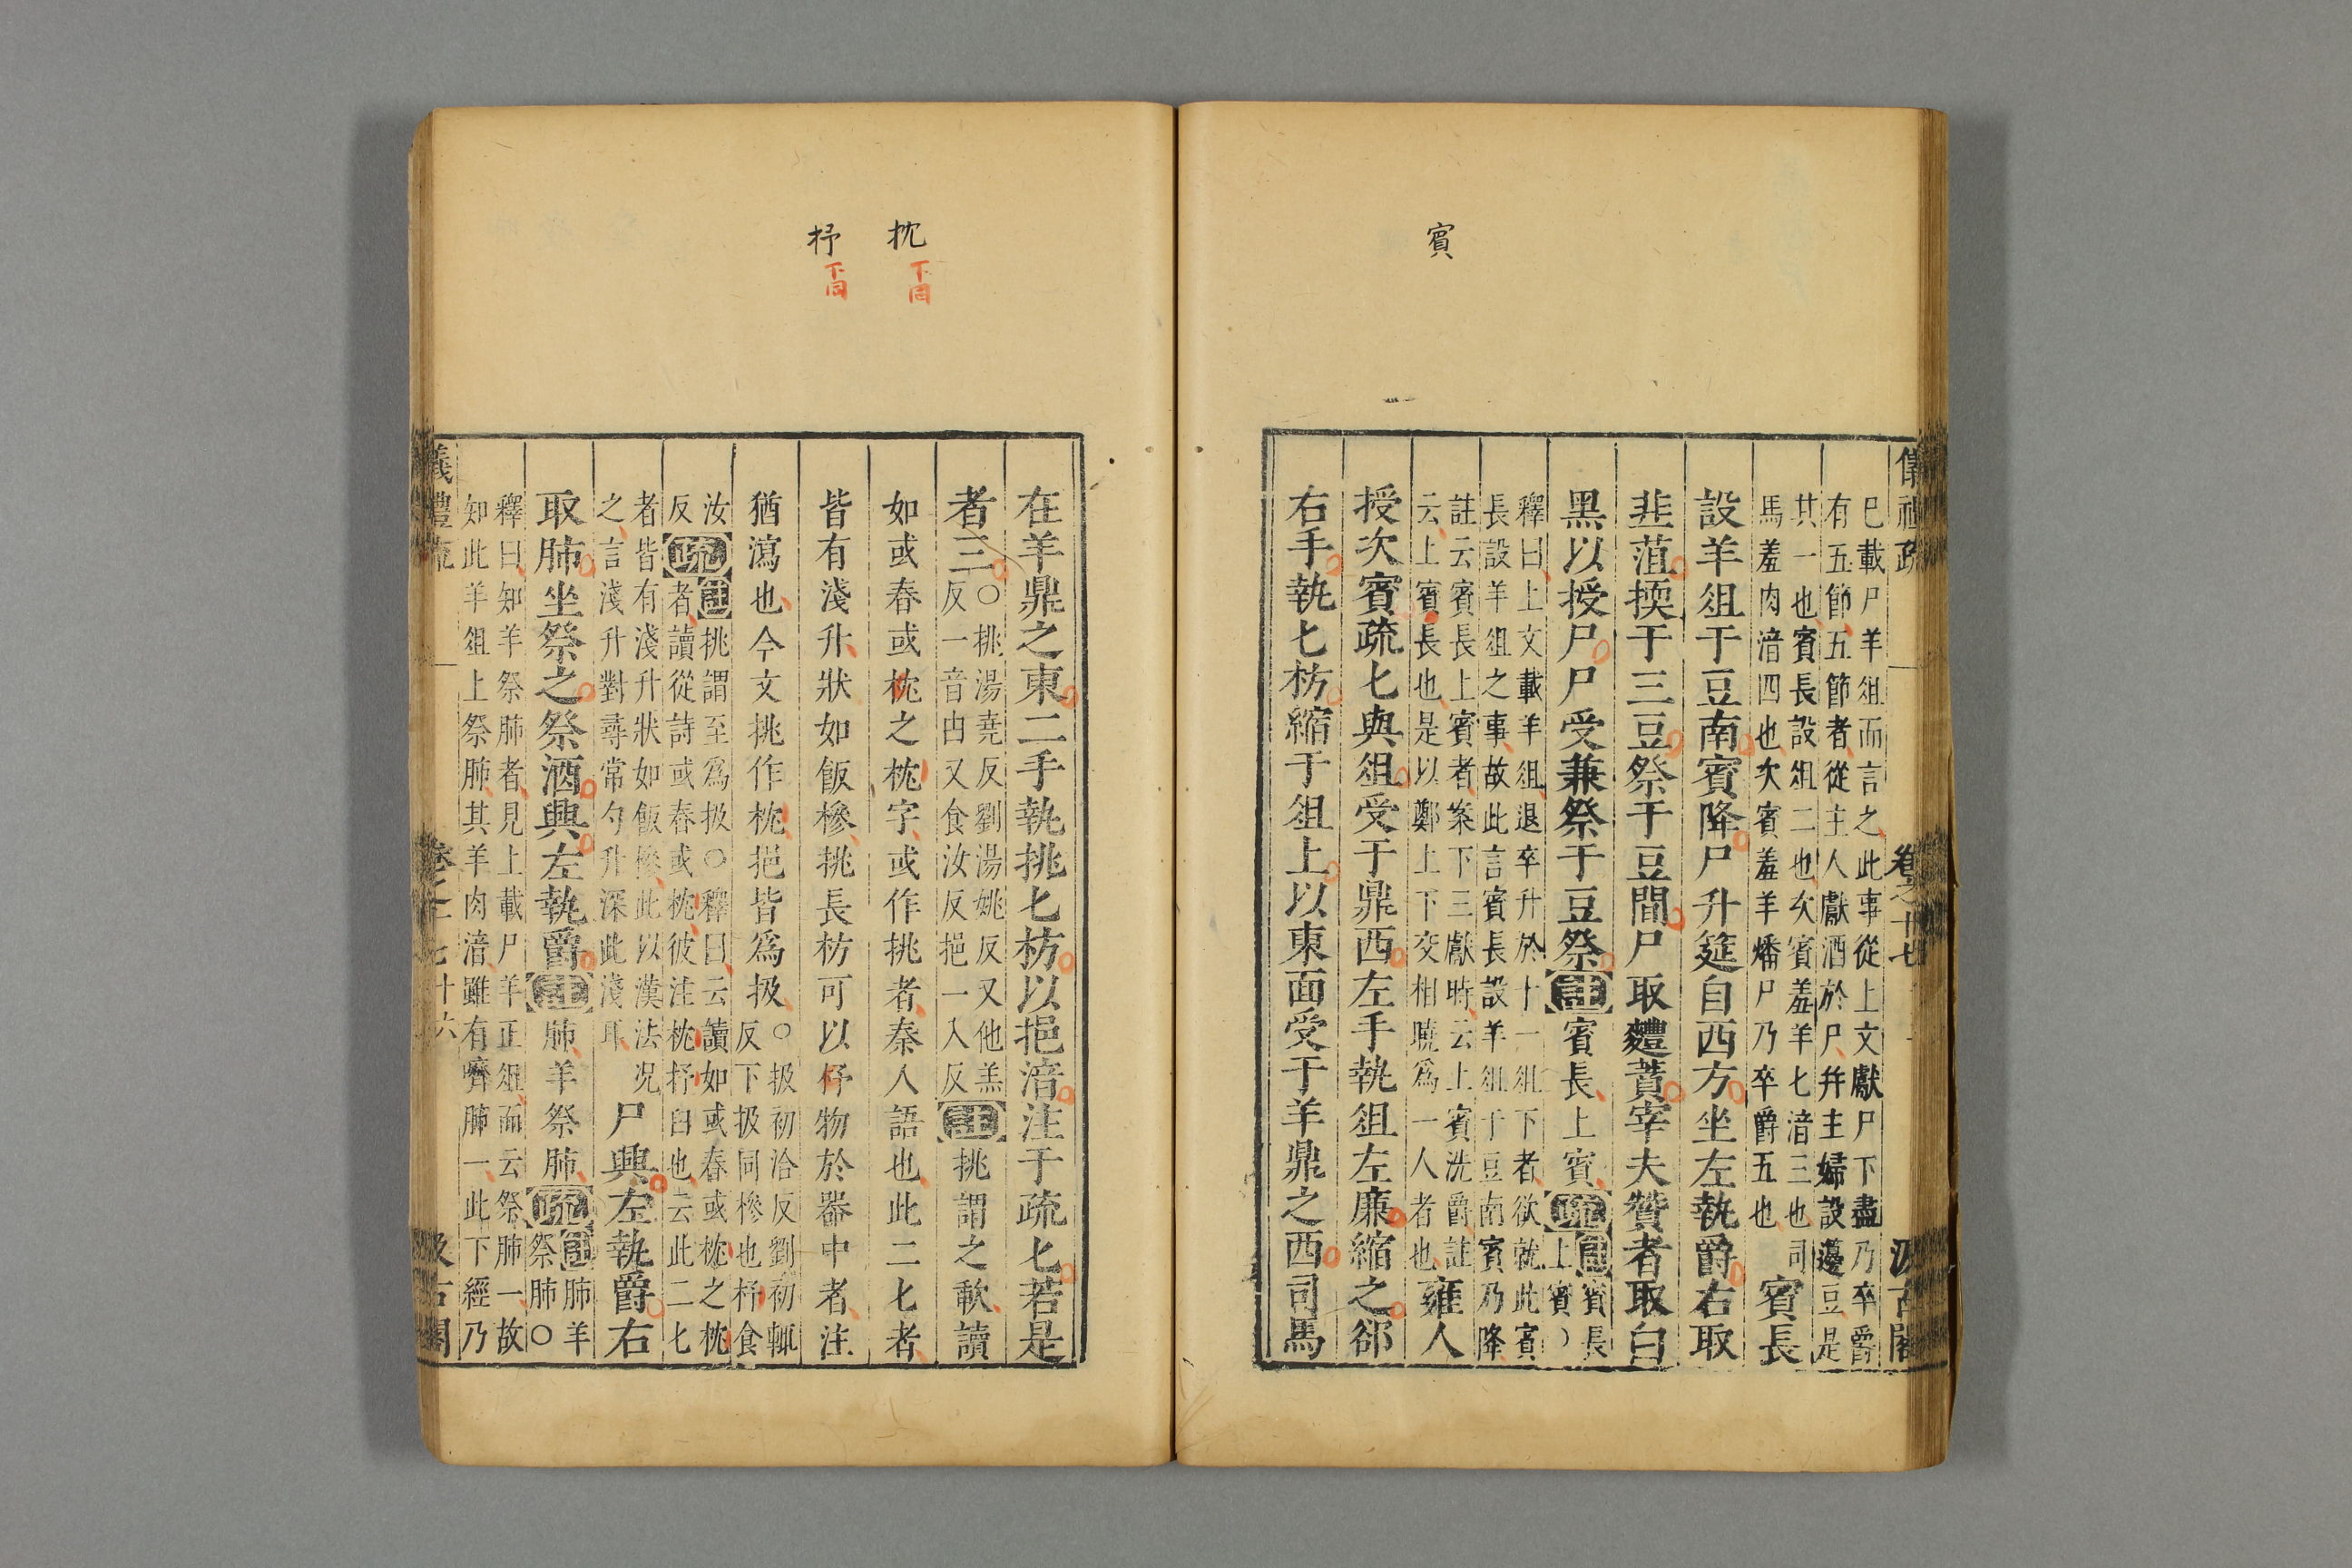 賓
儀禮疏 卷之十七 汲古閣
巳載尸羊俎而言之此事從上文獻尸下盡乃卒爵
有五節五節者從主人獻酒於尸并主婦設籩豆是
其一也賓長設俎二也次賓羞羊匕湆三也司
馬羞肉湆四也次賓羞羊燔尸乃卒爵五也
賓長
設羊俎于豆南賓降尸升筵自西方坐左執爵右取
韭菹㨎于三豆祭于豆間尸取麷蕡宰夫贊者取白
黑以授尸尸受兼祭于豆祭註賓長上賓疏註賓長
上賓○
釋曰上文載羊俎退卒升於十一俎下者欲就此賓
長設羊俎之事故此言賓長設羊俎于豆南賓乃降
註云賓長上賓者案下三獻時云上賓洗爵註
云上賓長也是以鄭上下交相曉爲一人者也
雍人
授次賓疏匕與俎受于鼎西左手執俎左廉縮之郤
右手執匕枋縮于俎上以東面受于羊鼎之西司馬
枕下同
杼下同
在羊鼎之東二手執挑匕枋以挹湆注于疏匕若是
者三○挑湯堯反劉湯姚反又他羔
反一音由又食汝反挹一入反
註挑謂之㪺讀
如或舂或枕之枕字或作挑者秦人語也此二匕者
皆有淺升狀如飯橾挑長枋可以杼物於器中者注
猶瀉也今文挑作枕挹皆爲扱○扱初洽反劉初輒
反下扱同橾也杼食
汝
反疏註挑謂至爲扱○釋曰云讀如或舂或枕之枕
者讀從詩或舂或枕彼注枕杼臼也云此二匕
者皆有淺升狀如飯橾此以漢法况
之言淺升對尋常勺升深此淺耳
尸興左執爵右
取肺坐祭之祭酒興左執爵註肺羊祭肺疏註肺羊
祭肺○
釋曰知羊祭肺者見上載尸羊正俎而云祭肺一故
知此羊俎上祭肺其羊肉湆雖有嚌肺一此下經乃
儀禮疏 卷之十七 十六 汲古閣